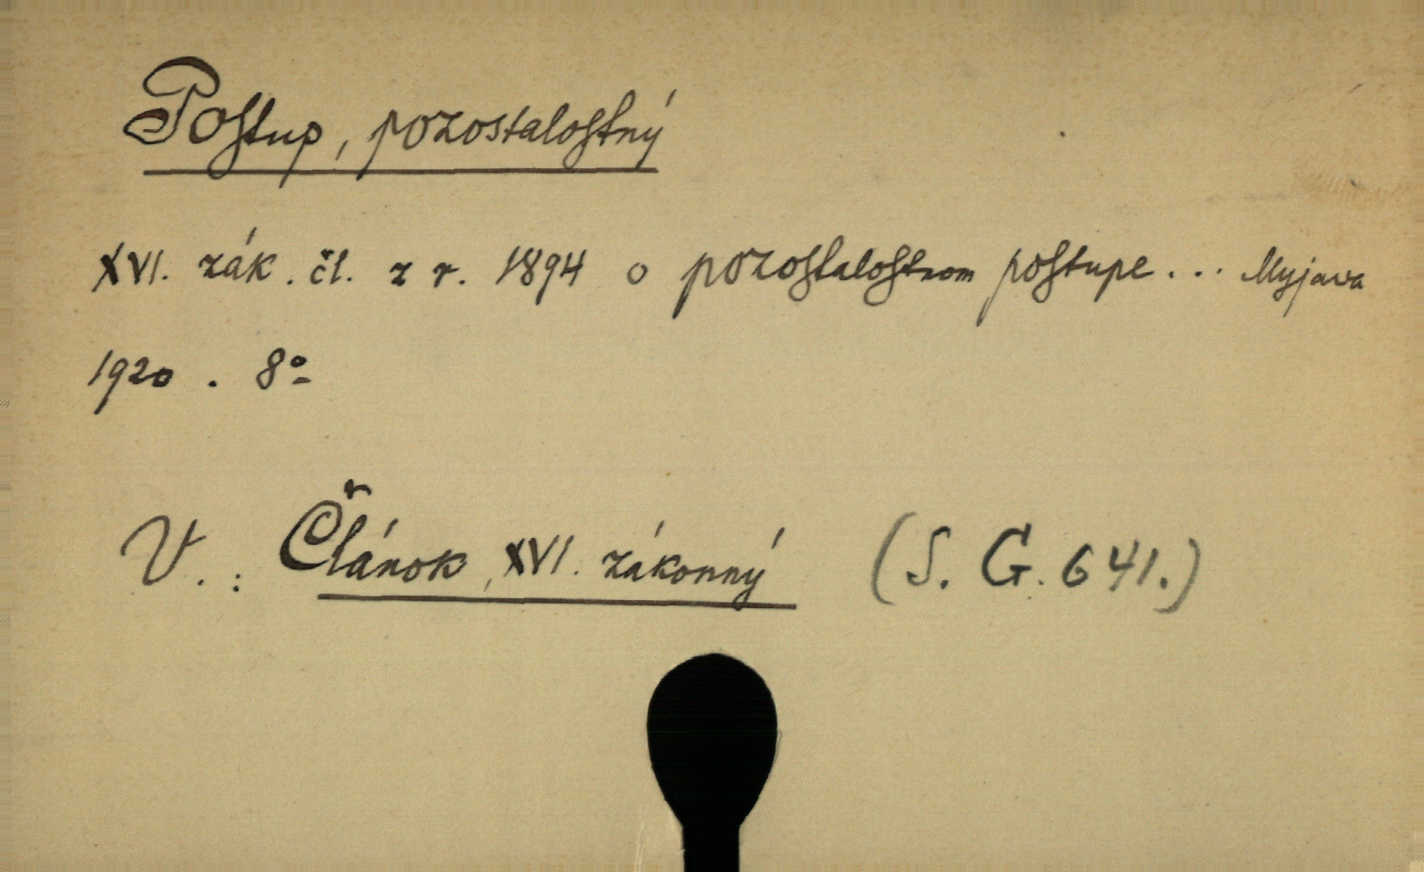 Postup, pozostalostný
XVI. zák. čl. z r. 1894 o pozostalostnom postupe... Myjava
1920. 8°
V.: Článok, XVI. zákonný (S. G. 641.)